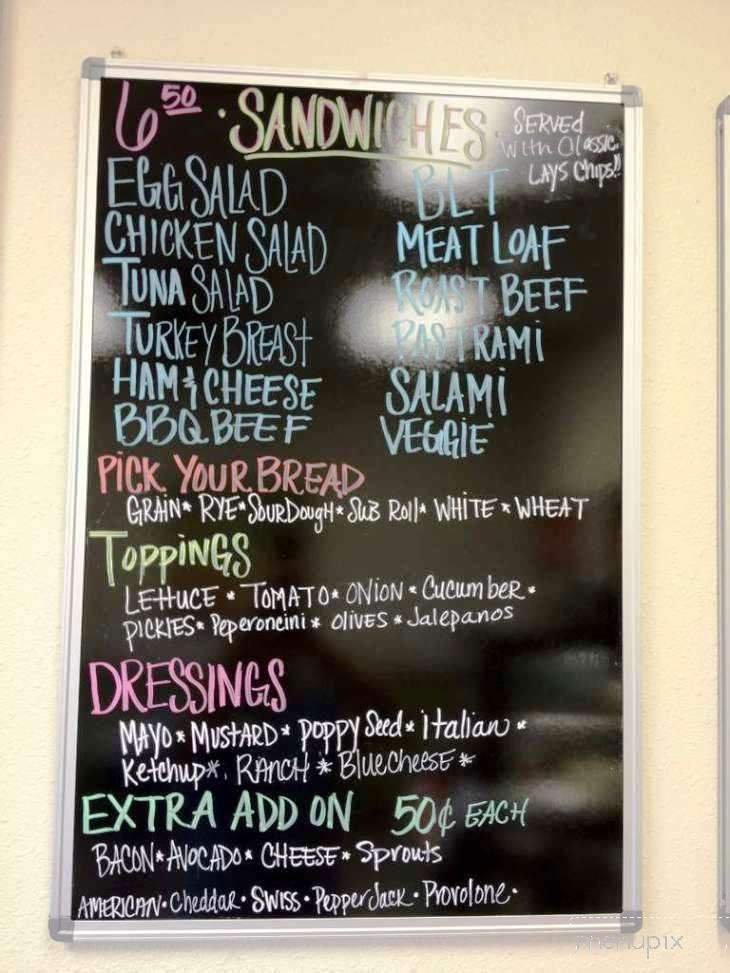 6 50 · SANDWICHES · SERVED
With Classic
LAYS Chips!!
EGG SALAD
CHICKEN SALAD
TUNA SALAD
TURKEY BREAST
HAM & CHEESE
BBQ BEEF
BLT
MEAT LOAF
ROAST BEEF
PASTRAMi
SALAMi
VEGGIE
PiCK YOUR BREAD
GRAiN * RYE * SOURDough * SUB Roll * WHITE * WHEAT
TOPPiNGS
LETTUCE * TOMATO * ONiON * Cucumber *
PiCKlES * Peperoncini * OliVES * Jalepanos
DRESSINGS
MAYO * MUSTARD * POPPY Seed * italian *
Ketchup * RANCH * BlueCheese *
EXTRA ADD ON 50¢ EACH
BACON * AVOCADO * CHEESE * Sprouts
AMERICAN · Cheddar · SWiss · PepperJack · Provolone ·
menupix